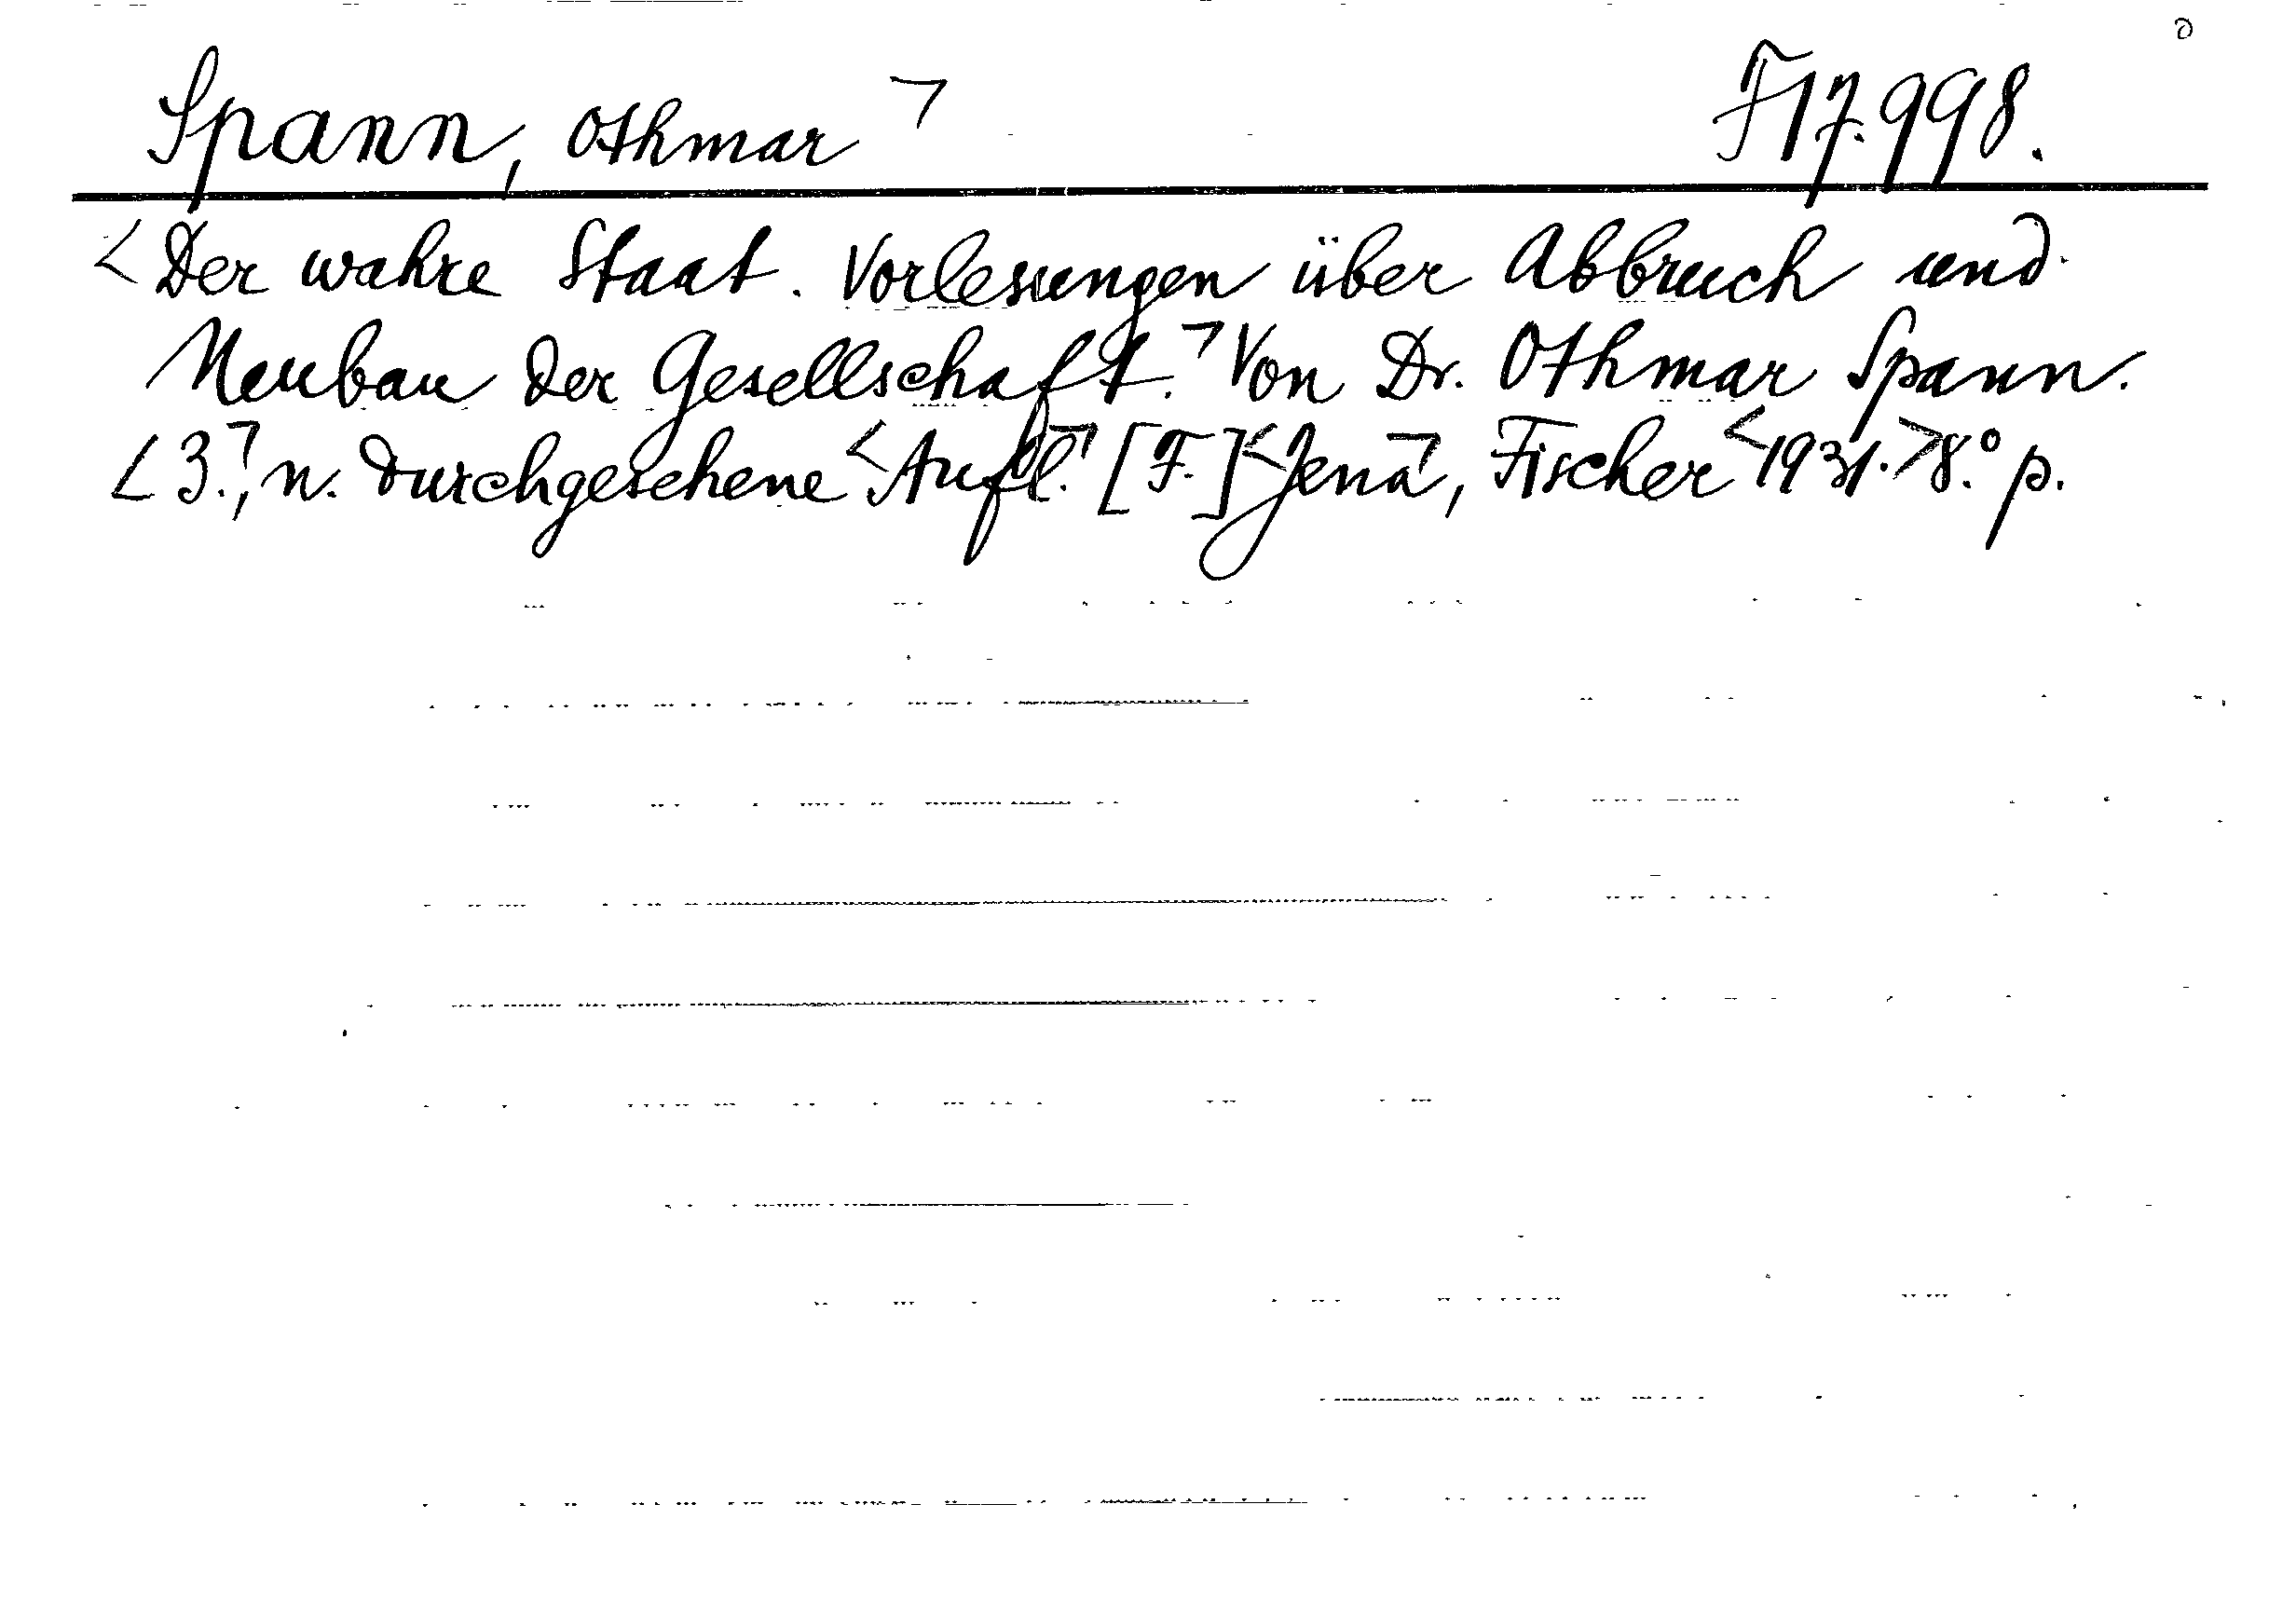 Spann, Othmar ㄱ F 17.998.
<Der wahre Staat. Vorlesungen über Abbruch und
Neubau der Gesellschaft.ㄱ Von Dr. Othmar Spann.
<3.ㄱ, n. durchgesehene <Aufl.ㄱ [F.] <Jenaㄱ, Fischer <1931.> 8.° p.